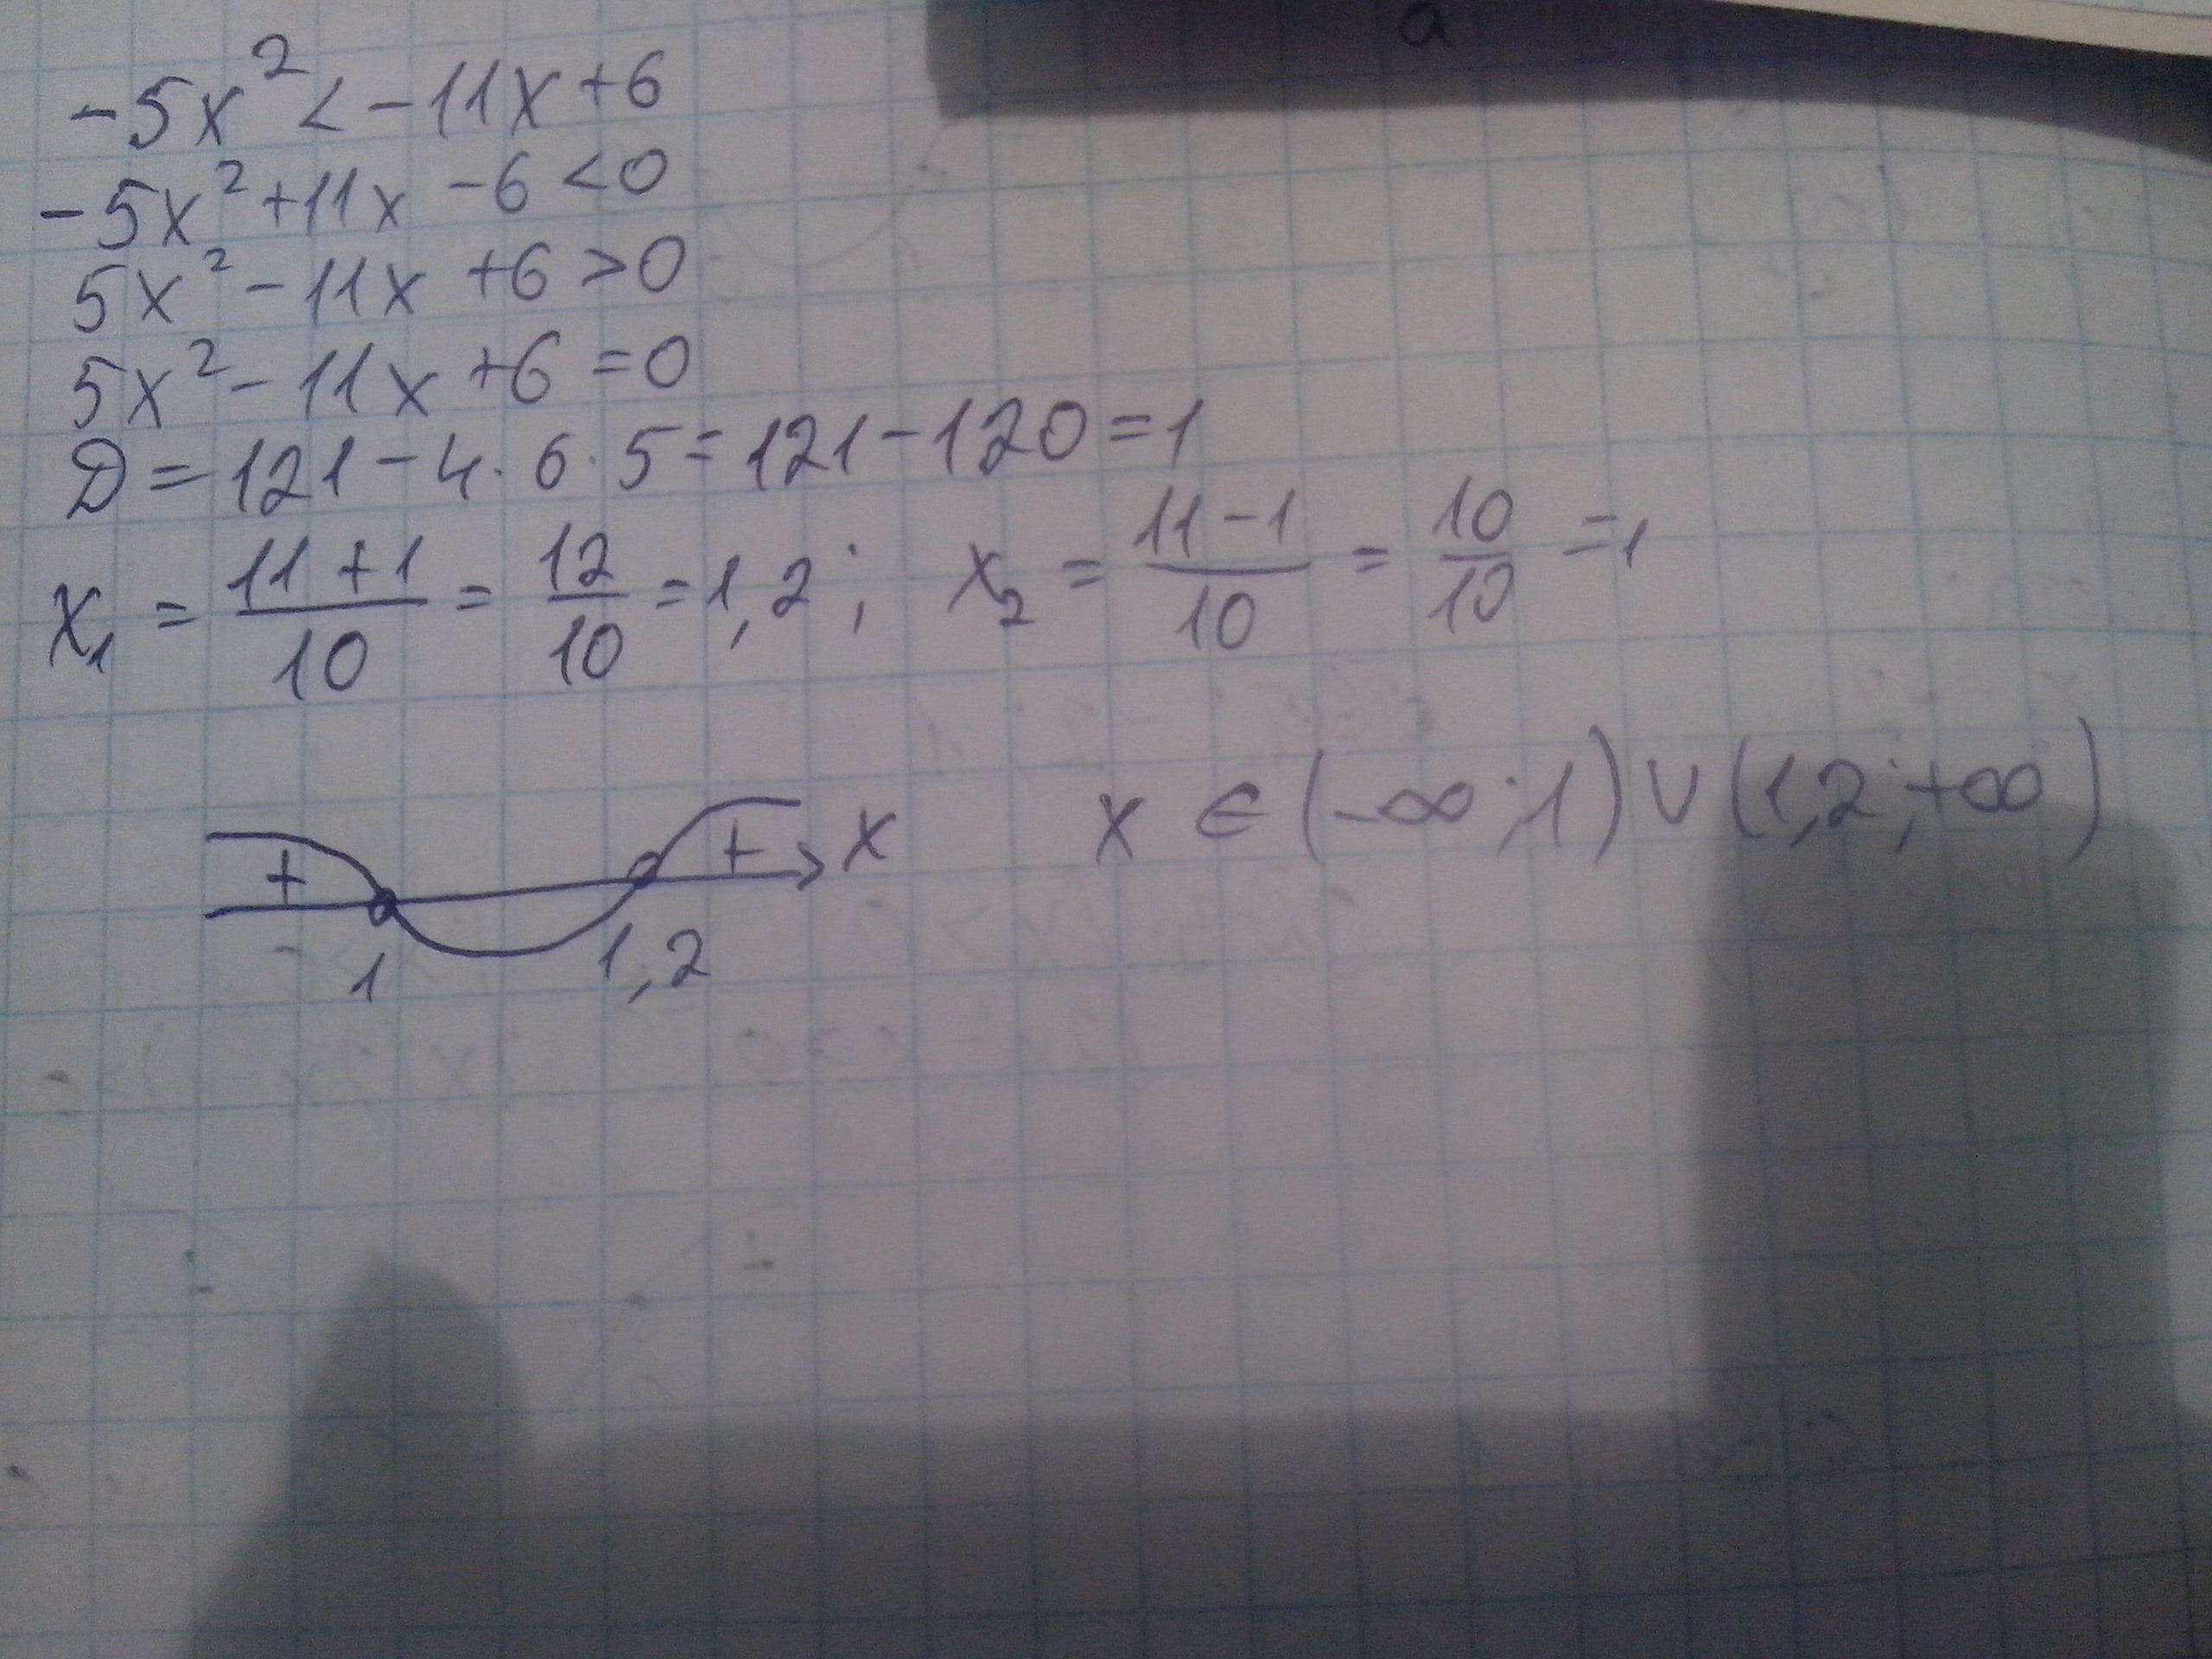 a
-5x² < -11x + 6
-5x² + 11x - 6 < 0
5x² - 11x + 6 > 0
5x² - 11x + 6 = 0
D = 121 - 4 · 6 · 5 = 121 - 120 = 1
x₁ = (11 + 1)/10 = 12/10 = 1,2 ; x₂ = (11 - 1)/10 = 10/10 = 1
+ + x
- 1 1,2
x ∈ (-∞; 1) ∪ (1,2; +∞)